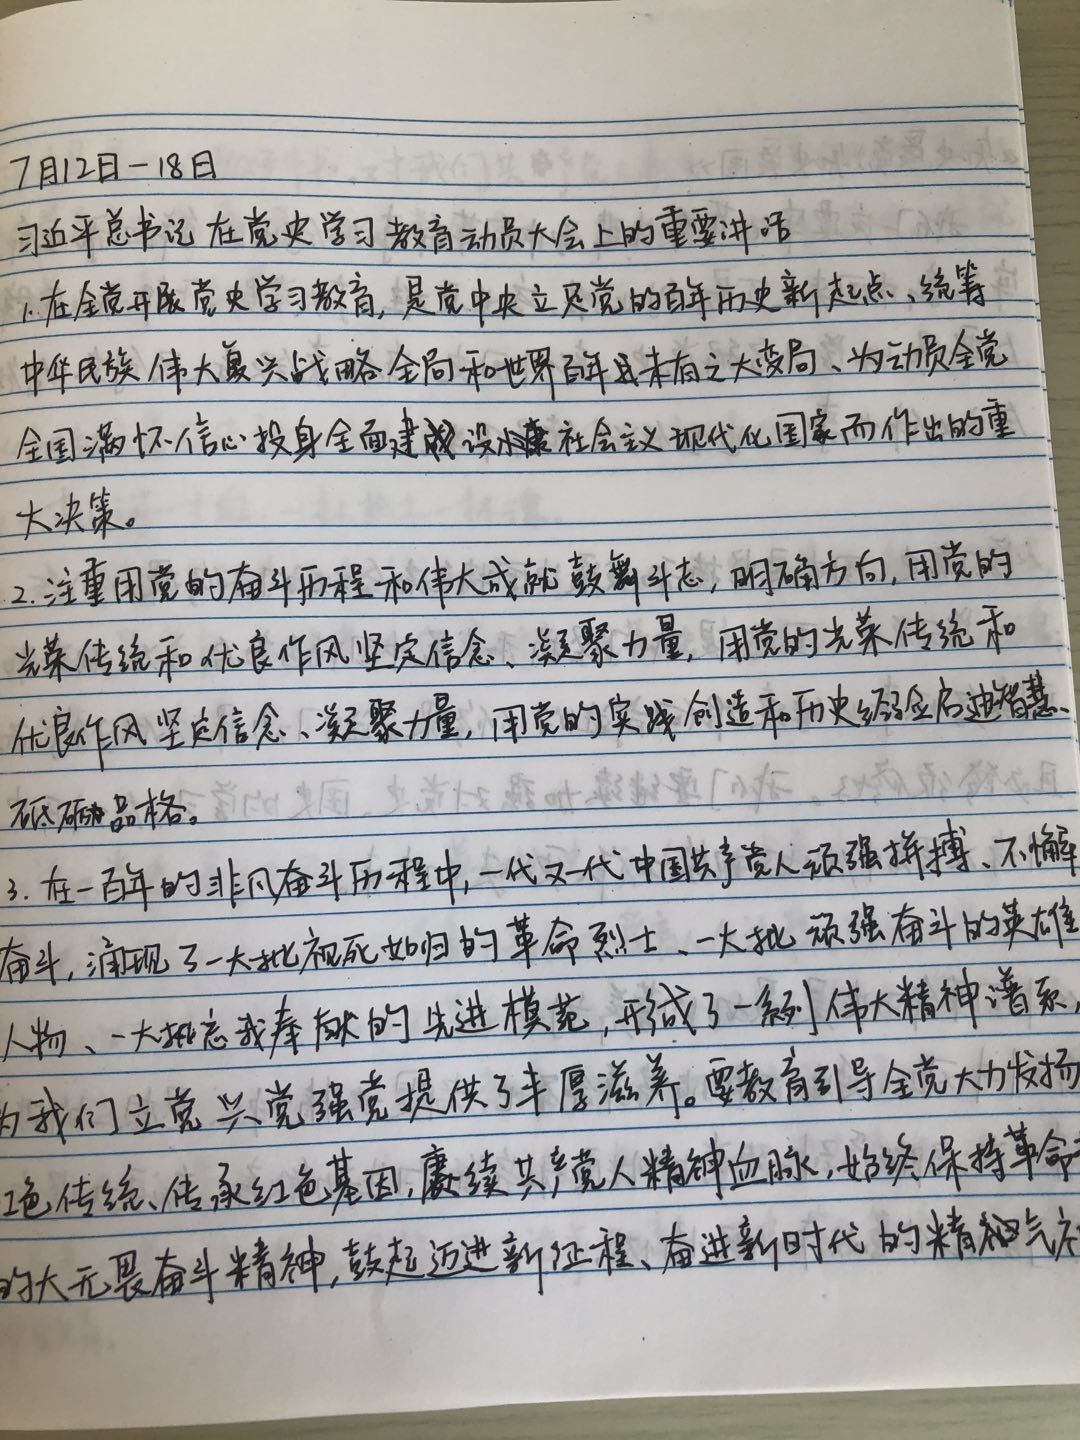 7月12日－18日
习近平总书记在党史学习教育动员大会上的重要讲话
1.在全党开展党史学习教育，是党中央立足党的百年历史新起点、统筹
中华民族伟大复兴战略全局和世界百年未有之大变局、为动员全党
全国满怀信心投身全面建设社会主义现代化国家而作出的重
大决策。
2.注重用党的奋斗历程和伟大成就鼓舞斗志，明确方向，用党的
光荣传统和优良作风坚定信念、凝聚力量，用党的光荣传统和
优良作风坚定信念、凝聚力量，用党的实践创造和历史经验启迪智慧、
砥砺品格。
3.在一百年的非凡奋斗历程中，一代又一代中国共产党人顽强拼搏、不懈
奋斗，涌现了一大批视死如归的革命烈士、一大批顽强奋斗的英雄
人物、一大批忘我奉献的先进模范，形成了一系列伟大精神谱系，
为我们立党兴党强党提供了丰厚滋养。要教育引导全党大力发扬
红色传统、传承红色基因，赓续共产党人精神血脉，始终保持革命
的大无畏奋斗精神，鼓起迈进新征程、奋进新时代的精神气